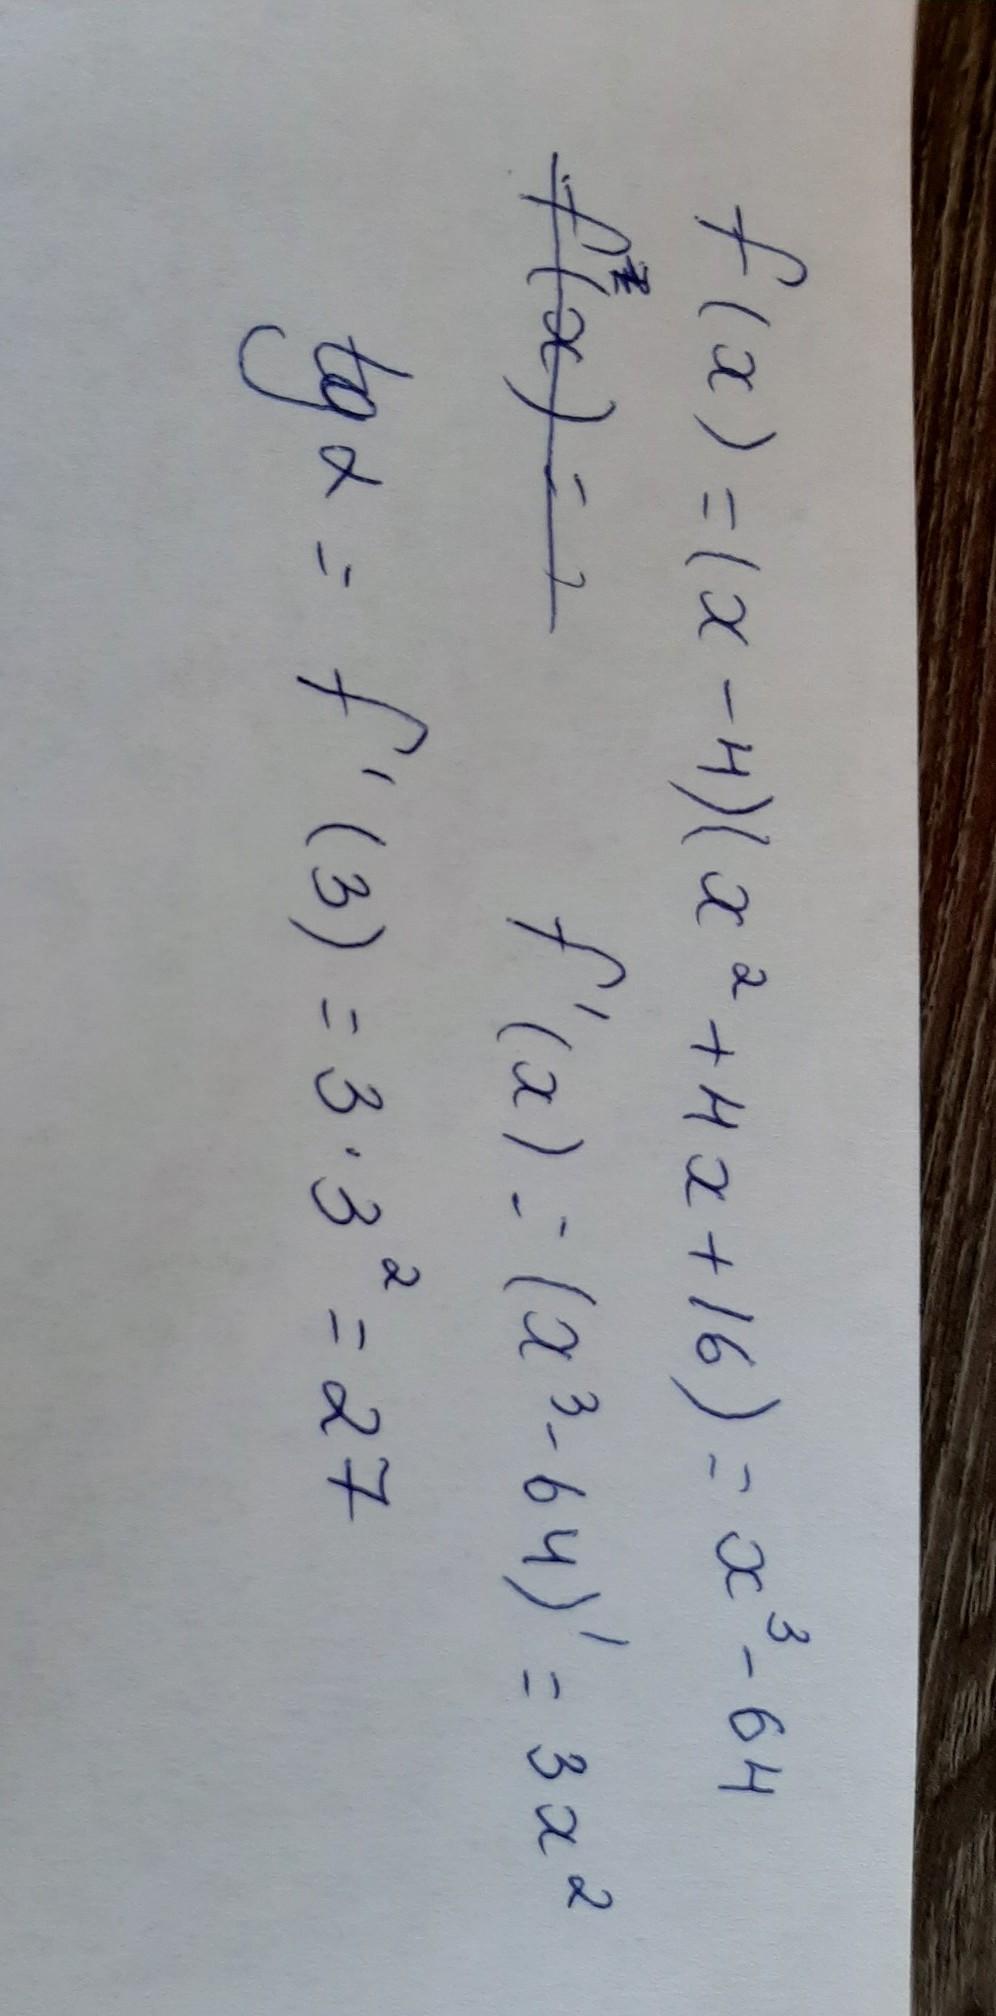 f(x) = (x - 4)(x² + 4x + 16) = x³ - 64
f'(x) = (x³ - 64)' = 3x²
tg α = f'(3) = 3 · 3² = 27